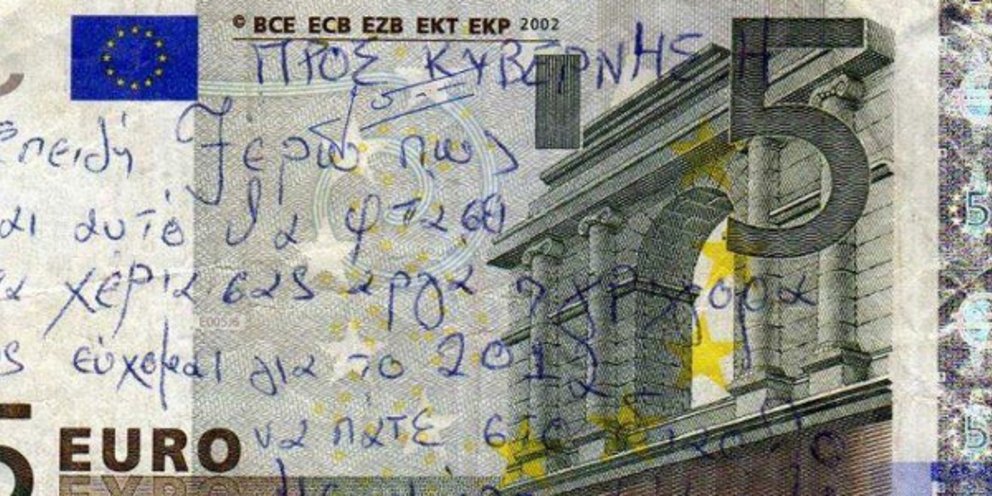 © BCE ECB EZB EKT EKP 2002
5
ΠΡΟΣ ΚΥΒΕΡΝΗΣΗ
Επειδή ξέρω πως
αι αυτό θα φτασει
α χερια σας αργα η γρηγορα
ς εύχομαι για το 2012
να πατε στο
EURO
5
5